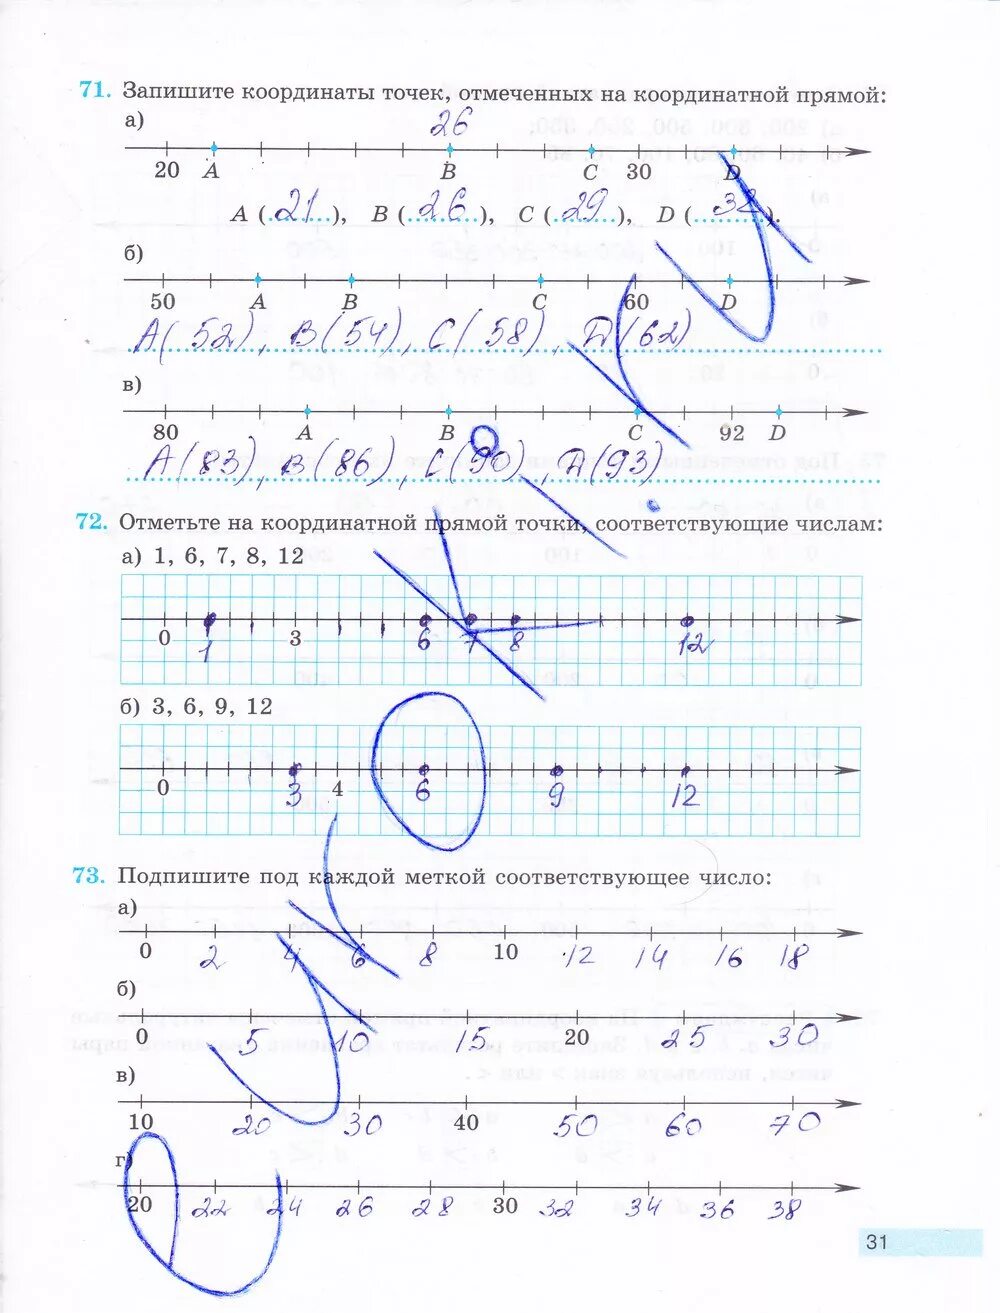 71. Запишите координаты точек, отмеченных на координатной прямой:
а)
26
20 A B C 30 D
A (21), B (26), C (29), D (32).
б)
50 A B C 60 D
А(52), В(54), С(58), D(62)
в)
80 A B C 92 D
А(83), В(86), С(90), D(93)
72. Отметьте на координатной прямой точки, соответствующие числам:
а) 1, 6, 7, 8, 12
0 1 3 6 7 8 12
б) 3, 6, 9, 12
0 3 4 6 9 12
73. Подпишите под каждой меткой соответствующее число:
а)
0 2 4 6 8 10 12 14 16 18
б)
0 5 10 15 20 25 30
в)
10 20 30 40 50 60 70
г)
20 22 24 26 28 30 32 34 36 38
31